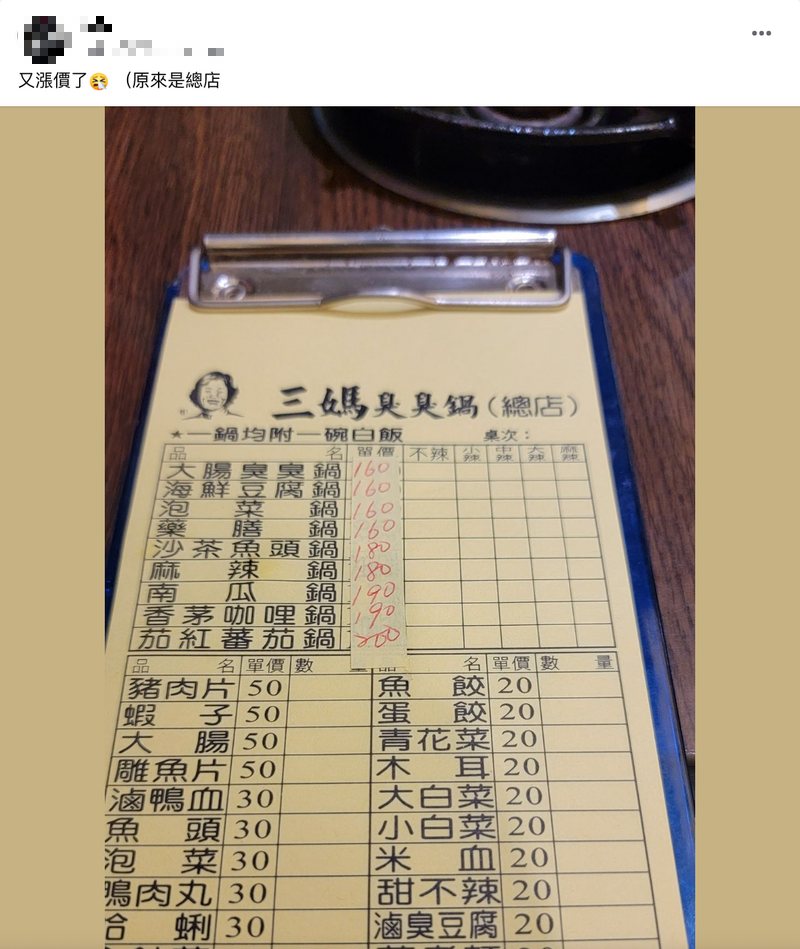 又漲價了🤧 （原來是總店
三媽臭臭鍋(總店)
★一鍋均附一碗白飯 桌次：
品名 單價 不辣 小辣 中辣 大辣 麻辣
大腸臭臭鍋 160
海鮮豆腐鍋 160
泡菜鍋 160
藥膳鍋 160
沙茶魚頭鍋 180
麻辣鍋 180
南瓜鍋 190
香茅咖哩鍋 190
茄紅蕃茄鍋 200
品名 單價 數量 品名 單價 數量
豬肉片 50 魚餃 20
蝦子 50 蛋餃 20
大腸 50 青花菜 20
雕魚片 50 木耳 20
滷鴨血 30 大白菜 20
魚頭 30 小白菜 20
泡菜 30 米血 20
鴨肉丸 30 甜不辣 20
蛤蜊 30 滷臭豆腐 20